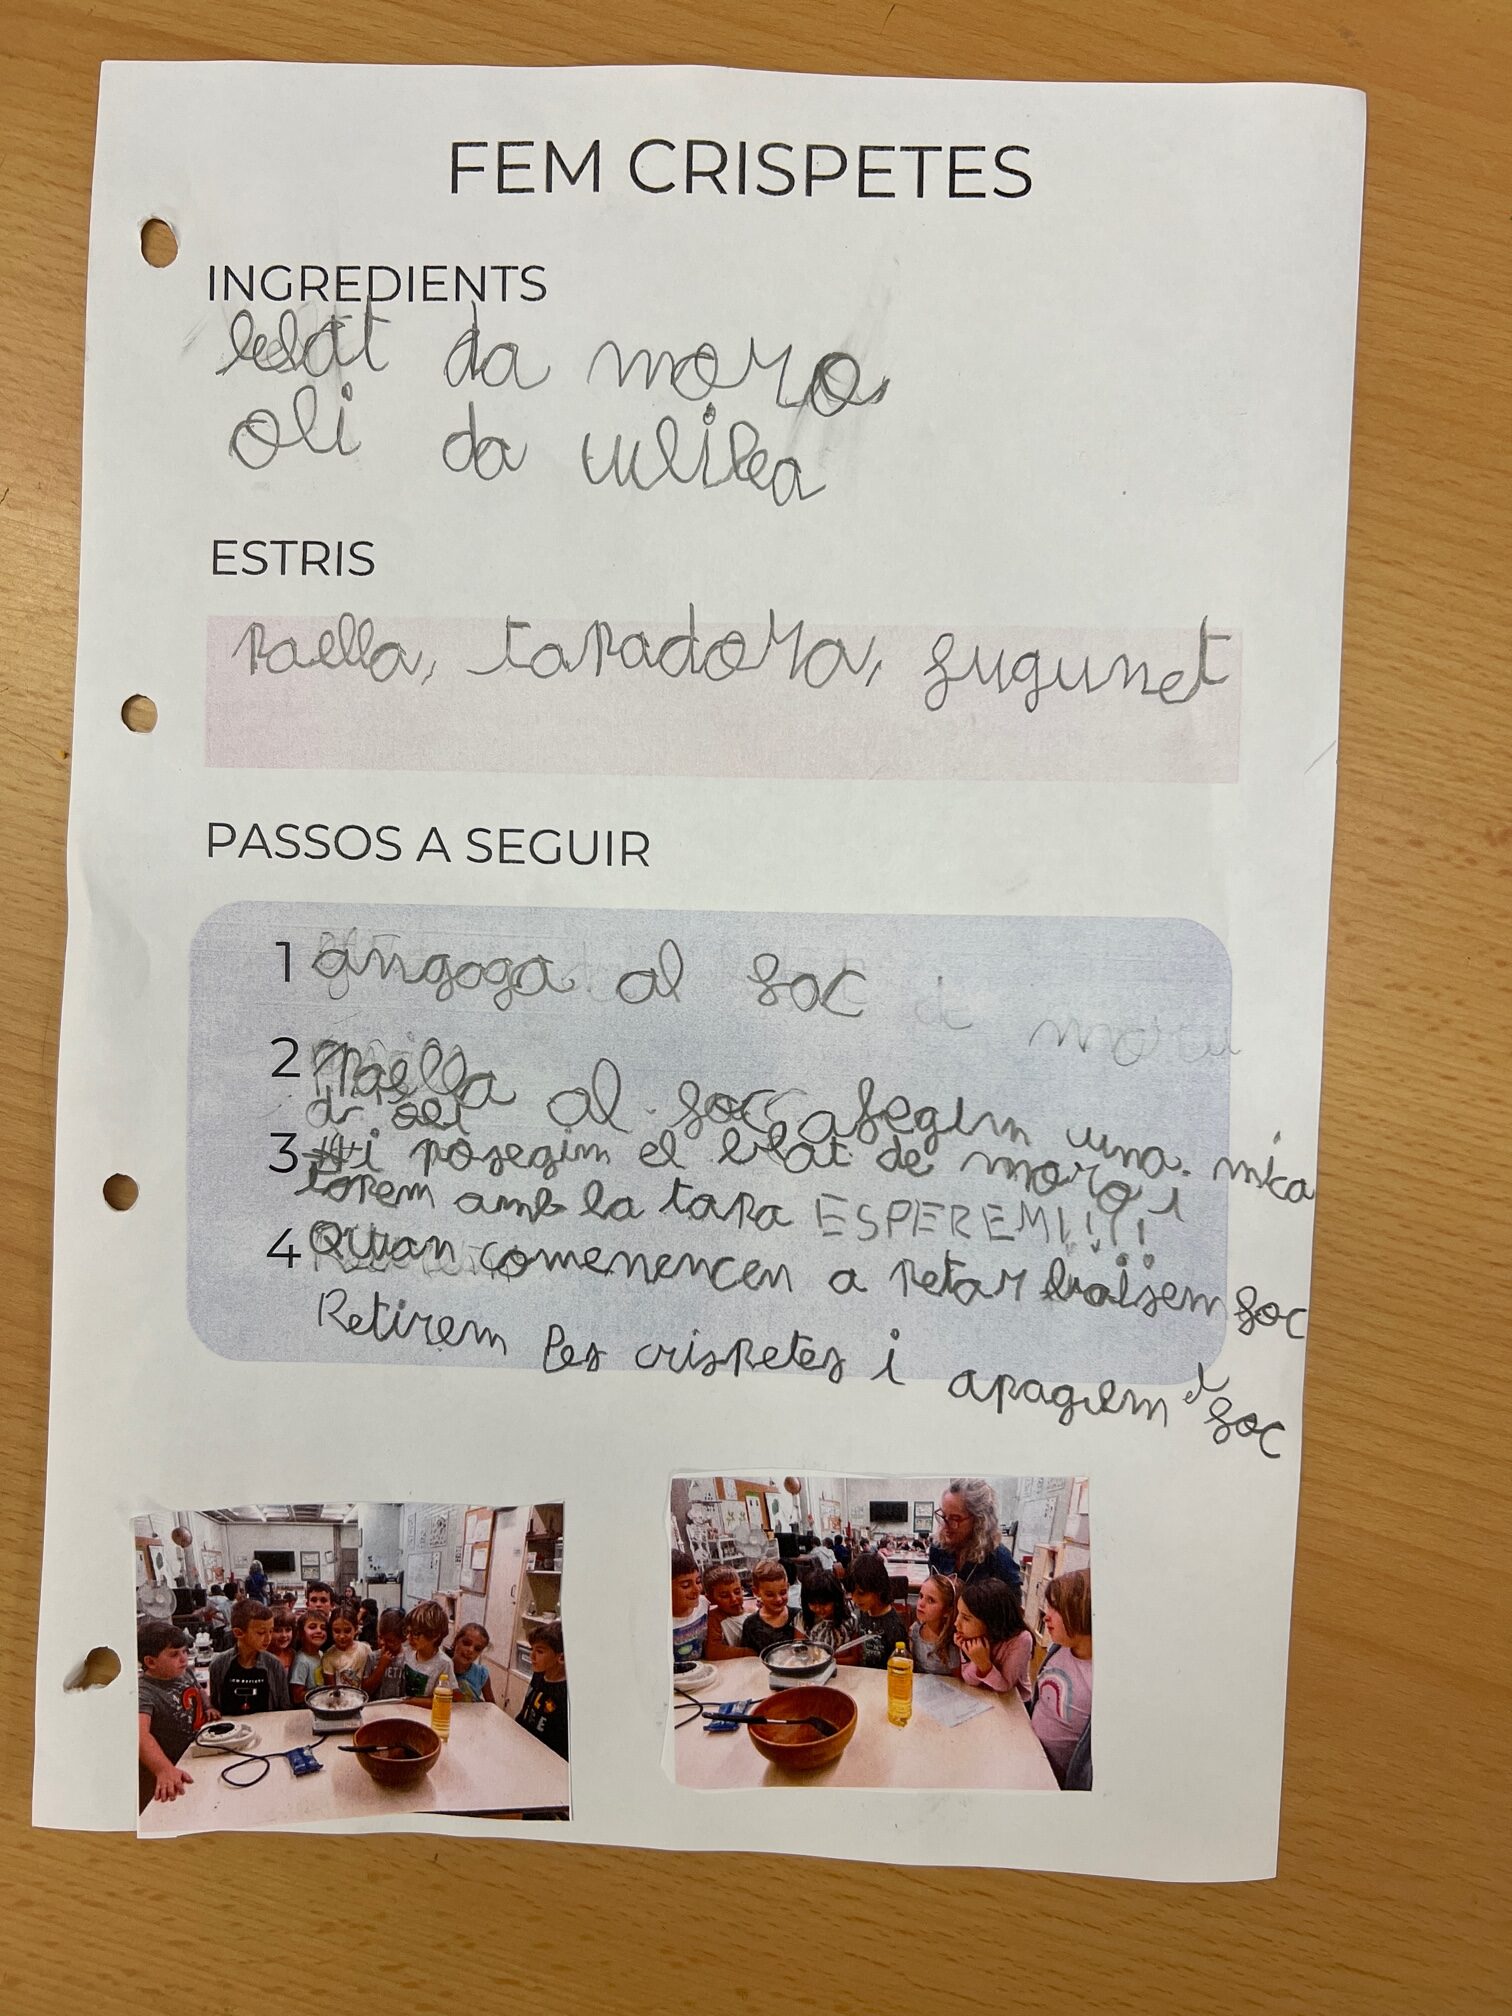 FEM CRISPETES
INGREDIENTS
blat da moro
oli da uliba
ESTRIS
paella, tapadora, fugunet
PASSOS A SEGUIR
1 angoga al foc
2 Paella al foc afegim una mica
d oli
3 i posegim el blat de moro i
tapem amb la tapa ESPEREM!!!!
4 Quan comenencen a petar baisem foc
Retirem les crispetes i apagem el foc